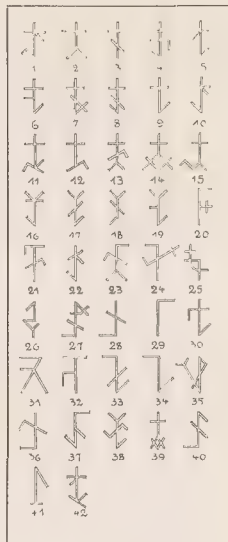 1 2 3 4 5
6 7 8 9 10
11 12 13 14 15
16 17 18 19 20
21 22 23 24 25
26 27 28 29 30
31 32 33 34 35
36 37 38 39 40
41 42